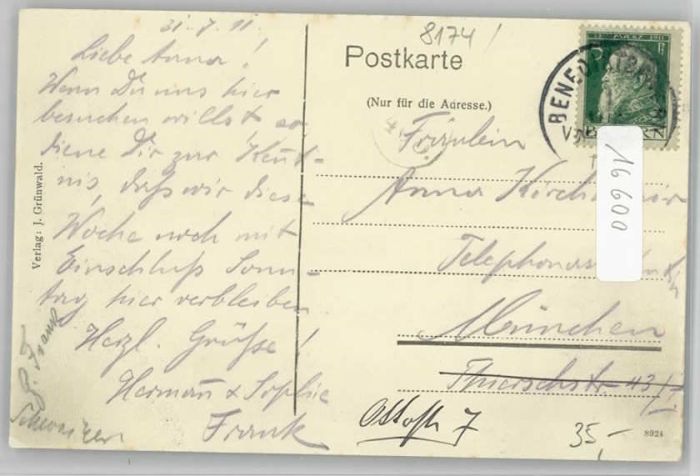 31.7.11.
Liebe Anna!
Wenn Du uns hier
besuchen willst so
diene Dir zur Kennt-
nis, daß wir diese
Woche noch mit
Einschluß Sonn-
tag hier verbleiben
Herzl. Grüße!
Hermann & Sophie
Frank
Verlag: J. Grünwald.
8174/
Postkarte
(Nur für die Adresse.)
Fräulein
Anna
München
Thierschstr. 43/I
7
BENED
16 600
35,-
8924